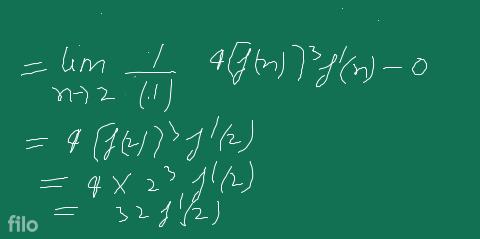 = lim 1/(1) 4{f(x)}³f'(x) - 0
x→2
= 4{f(2)}³ f'(2)
= 4 × 2³ f'(2)
= 32f'(2)
filo